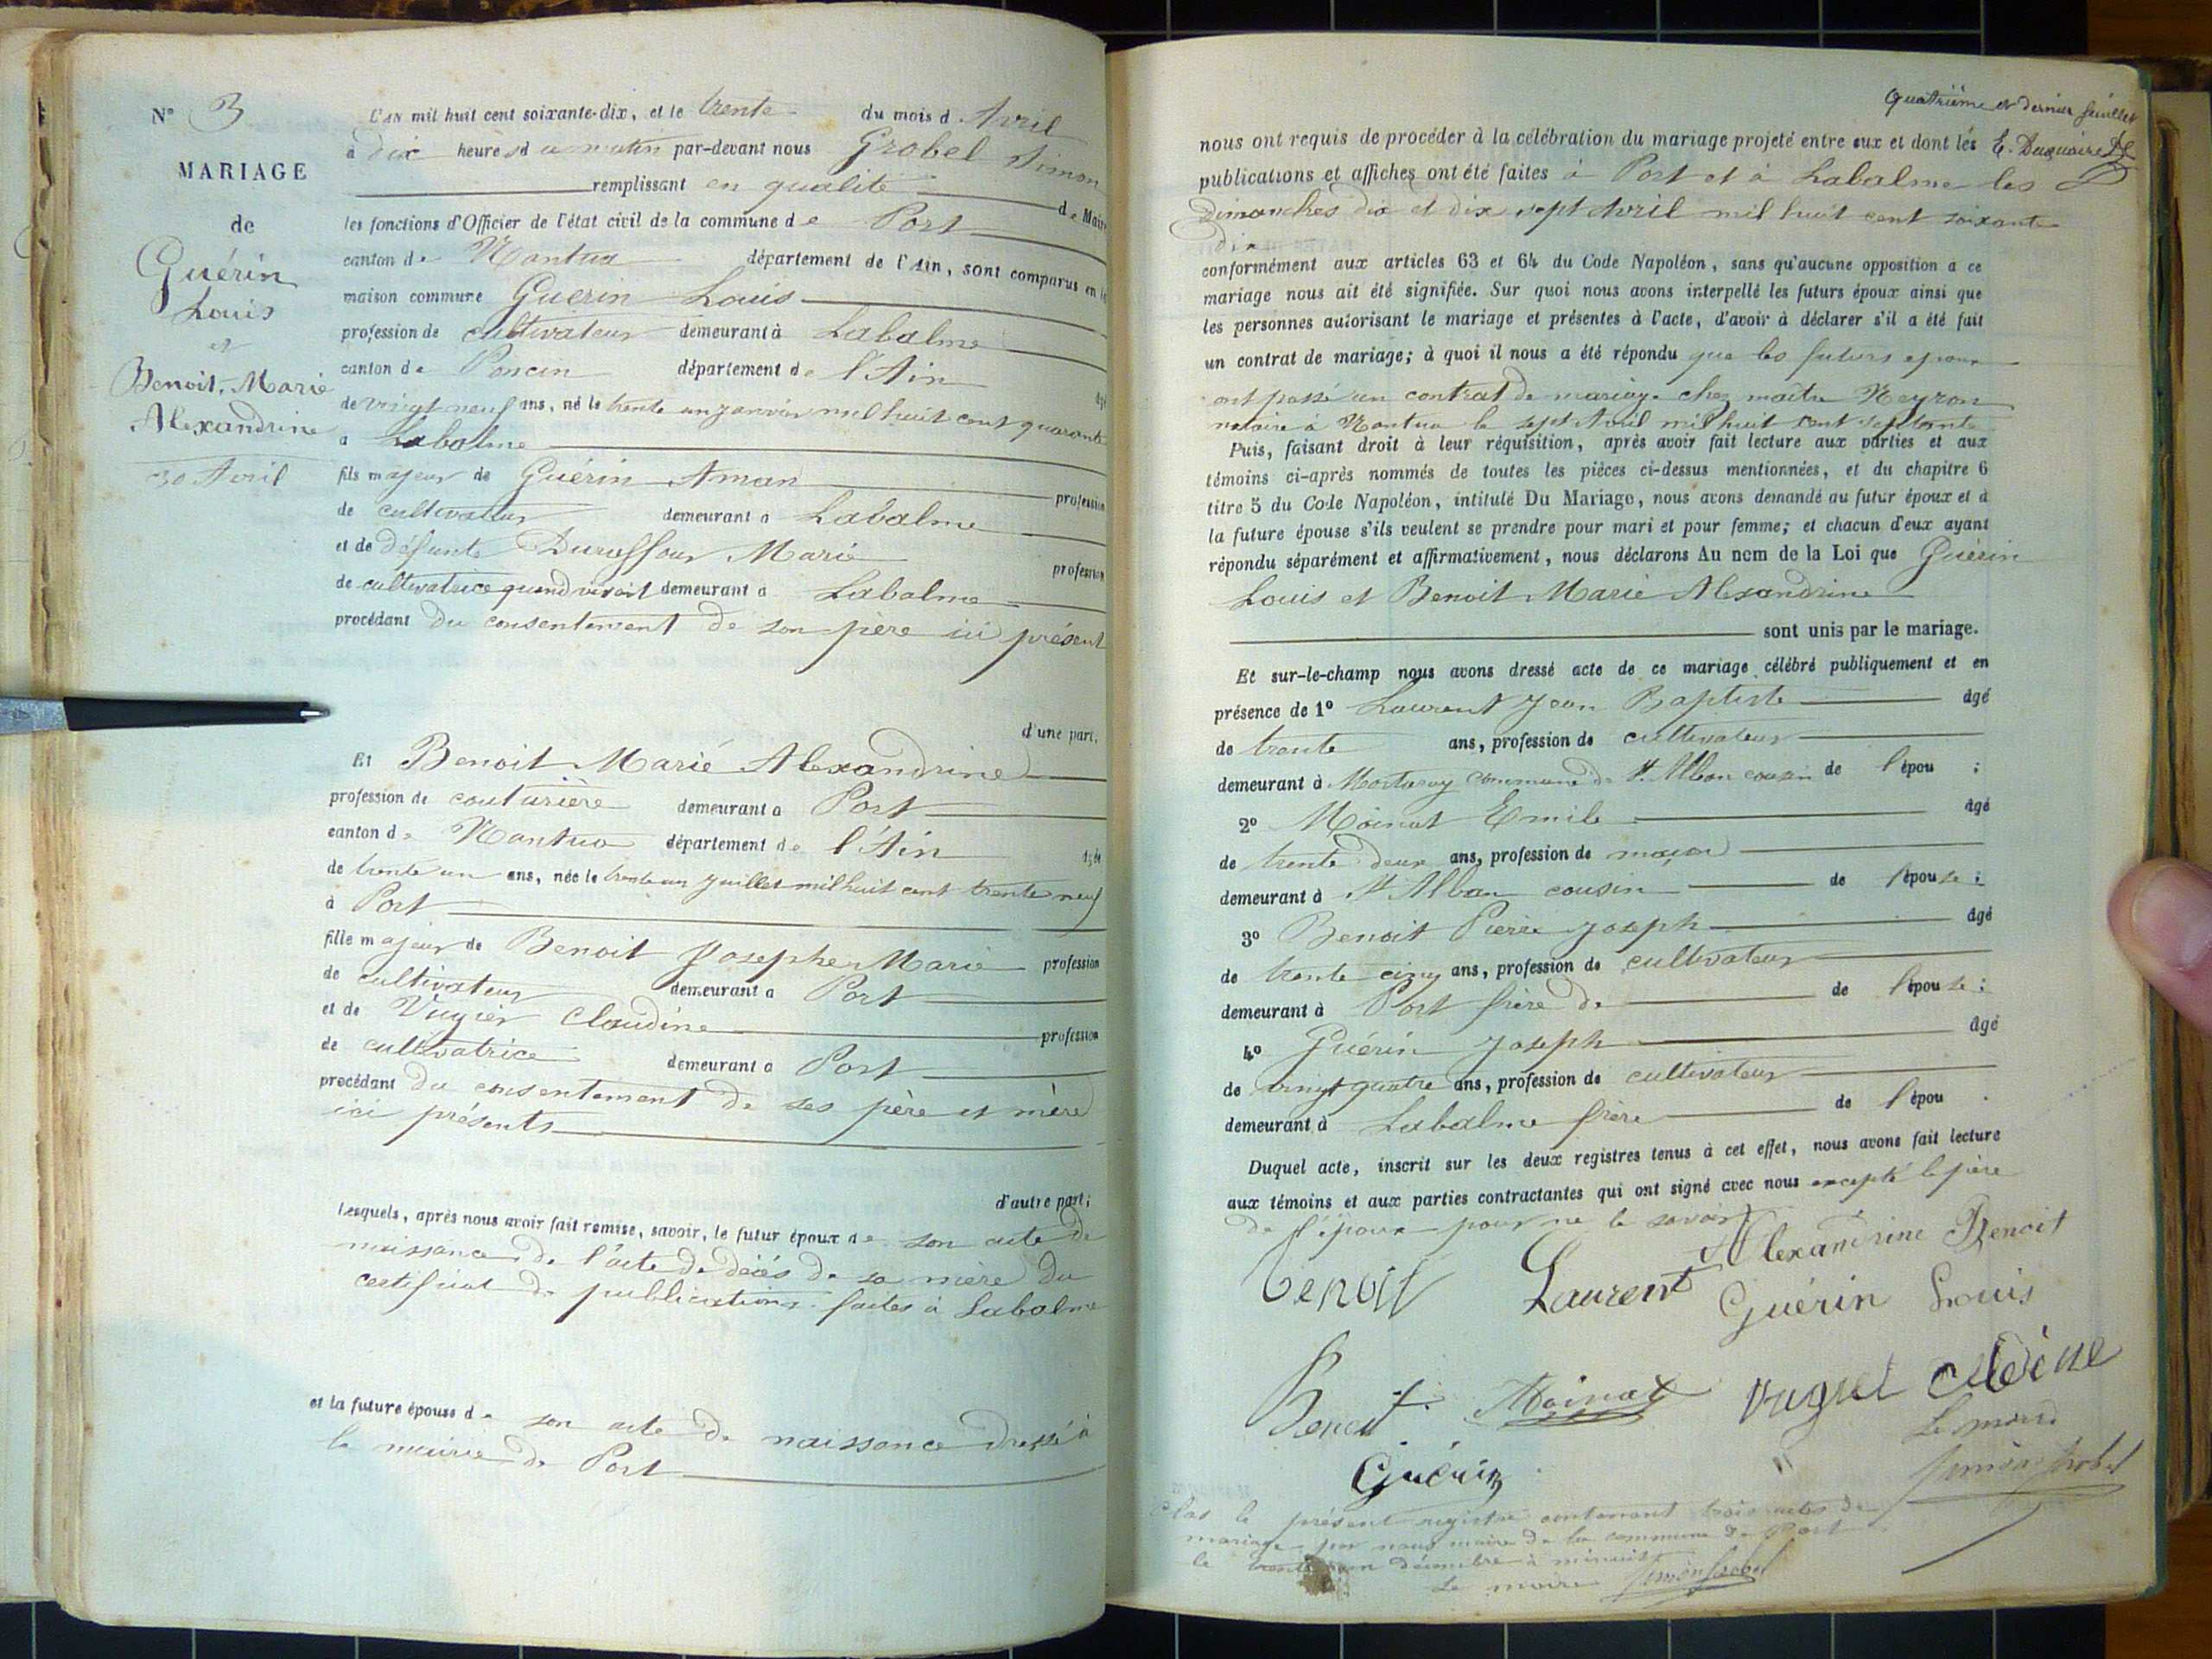 N° 3
MARIAGE
de
Guérin
Louis
et
Benoit Marie
Alexandrine
30 Avril
L'AN mil huit cent soixante-dix, et le trente du mois d Avril
à dix heures du matin par-devant nous Grobel Simon
remplissant en qualité de Maire
les fonctions d'Officier de l'état civil de la commune de Port
canton de Nantua département de l'Ain, sont comparus en la
maison commune Guerin Louis
profession de cultivateur demeurant à Labalme
canton de Poncin département de l'Ain âgé
de vingt neuf ans, né le trente un janvier mil huit cent quarante
a Labalme
fils majeur de Guérin Aman profession
de cultivateur demeurant a Labalme
et de défunte Marie profession
de cultivatrice quand vivait demeurant a Labalme
procédant du consentement de son père ici présent
d'une part,
Et Benoit Marie Alexandrine
profession de couturière demeurant a Port
canton de Nantua département de l'Ain âgée
de trente un ans, née le trente un juillet mil huit cent trente neuf
à Port
fille majeur de Benoit Josephe Marie profession
de cultivateur demeurant a Port
et de Claudine profession
de cultivatrice demeurant a Port
procédant du consentement de ses père et mère
ici présents
d'autre part;
Lesquels, après nous avoir fait remise, savoir, le futur époux de son acte de
naissance de l'acte de décès de sa mère du
certificat de publications faites à Labalme
et la future épouse de son acte de naissance dressé à
la mairie de Port
quatrième et dernier feuillet
nous ont requis de procéder à la célébration du mariage projeté entre eux et dont les
publications et affiches ont été faites à Port et à Labalme les
Dimanches dix et dix sept Avril mil huit cent soixante
dix
conformément aux articles 63 et 64 du Code Napoléon, sans qu'aucune opposition a ce
mariage nous ait été signifiée. Sur quoi nous avons interpellé les futurs époux ainsi que
les personnes autorisant le mariage et présentes à l'acte, d'avoir à déclarer s'il a été fait
un contrat de mariage; à quoi il nous a été répondu que les futurs epoux
ont passé un contrat de mariage chez maître Neyron
notaire à Nantua le sept Avril mil huit cent septante
Puis, faisant droit à leur réquisition, après avoir fait lecture aux parties et aux
témoins ci-après nommés de toutes les pièces ci-dessus mentionnées, et du chapitre 6
titre 5 du Code Napoléon, intitulé Du Mariage, nous avons demandé au futur époux et à
la future épouse s'ils veulent se prendre pour mari et pour femme; et chacun d'eux ayant
répondu séparément et affirmativement, nous déclarons Au nom de la Loi que Guérin
Louis et Benoit Marie Alexandrine
sont unis par le mariage.
Et sur-le-champ nous avons dressé acte de ce mariage célébré publiquement et en
présence de 1° Laurent Jean Baptiste âgé
de trente ans, profession de cultivateur
demeurant à commune de St. Alban cousin de l'épou ;
2° Moinat Emile âgé
de trente deux ans, profession de maçon
demeurant à St Alban cousin de l'épouse ;
3° Benoit Pierre Joseph âgé
de trente cinq ans, profession de cultivateur
demeurant à Port frère de de l'épouse ;
4° Guérin Joseph âgé
de vingt quatre ans, profession de cultivateur
demeurant à Labalme frère de l'épou .
Duquel acte, inscrit sur les deux registres tenus à cet effet, nous avons fait lecture
aux témoins et aux parties contractantes qui ont signé avec nous excepté le père
de l'époux pour ne le savoir
Alexandrine Benoit
Benoit Laurent Guérin Louis
Benoit Moinat
Le maire
Simon Grobel
Guérin
Clos le présent registre contenant trois actes de
mariage par nous maire de la commune de Port
le trente un décembre à minuit
Le maire Simon Grobel